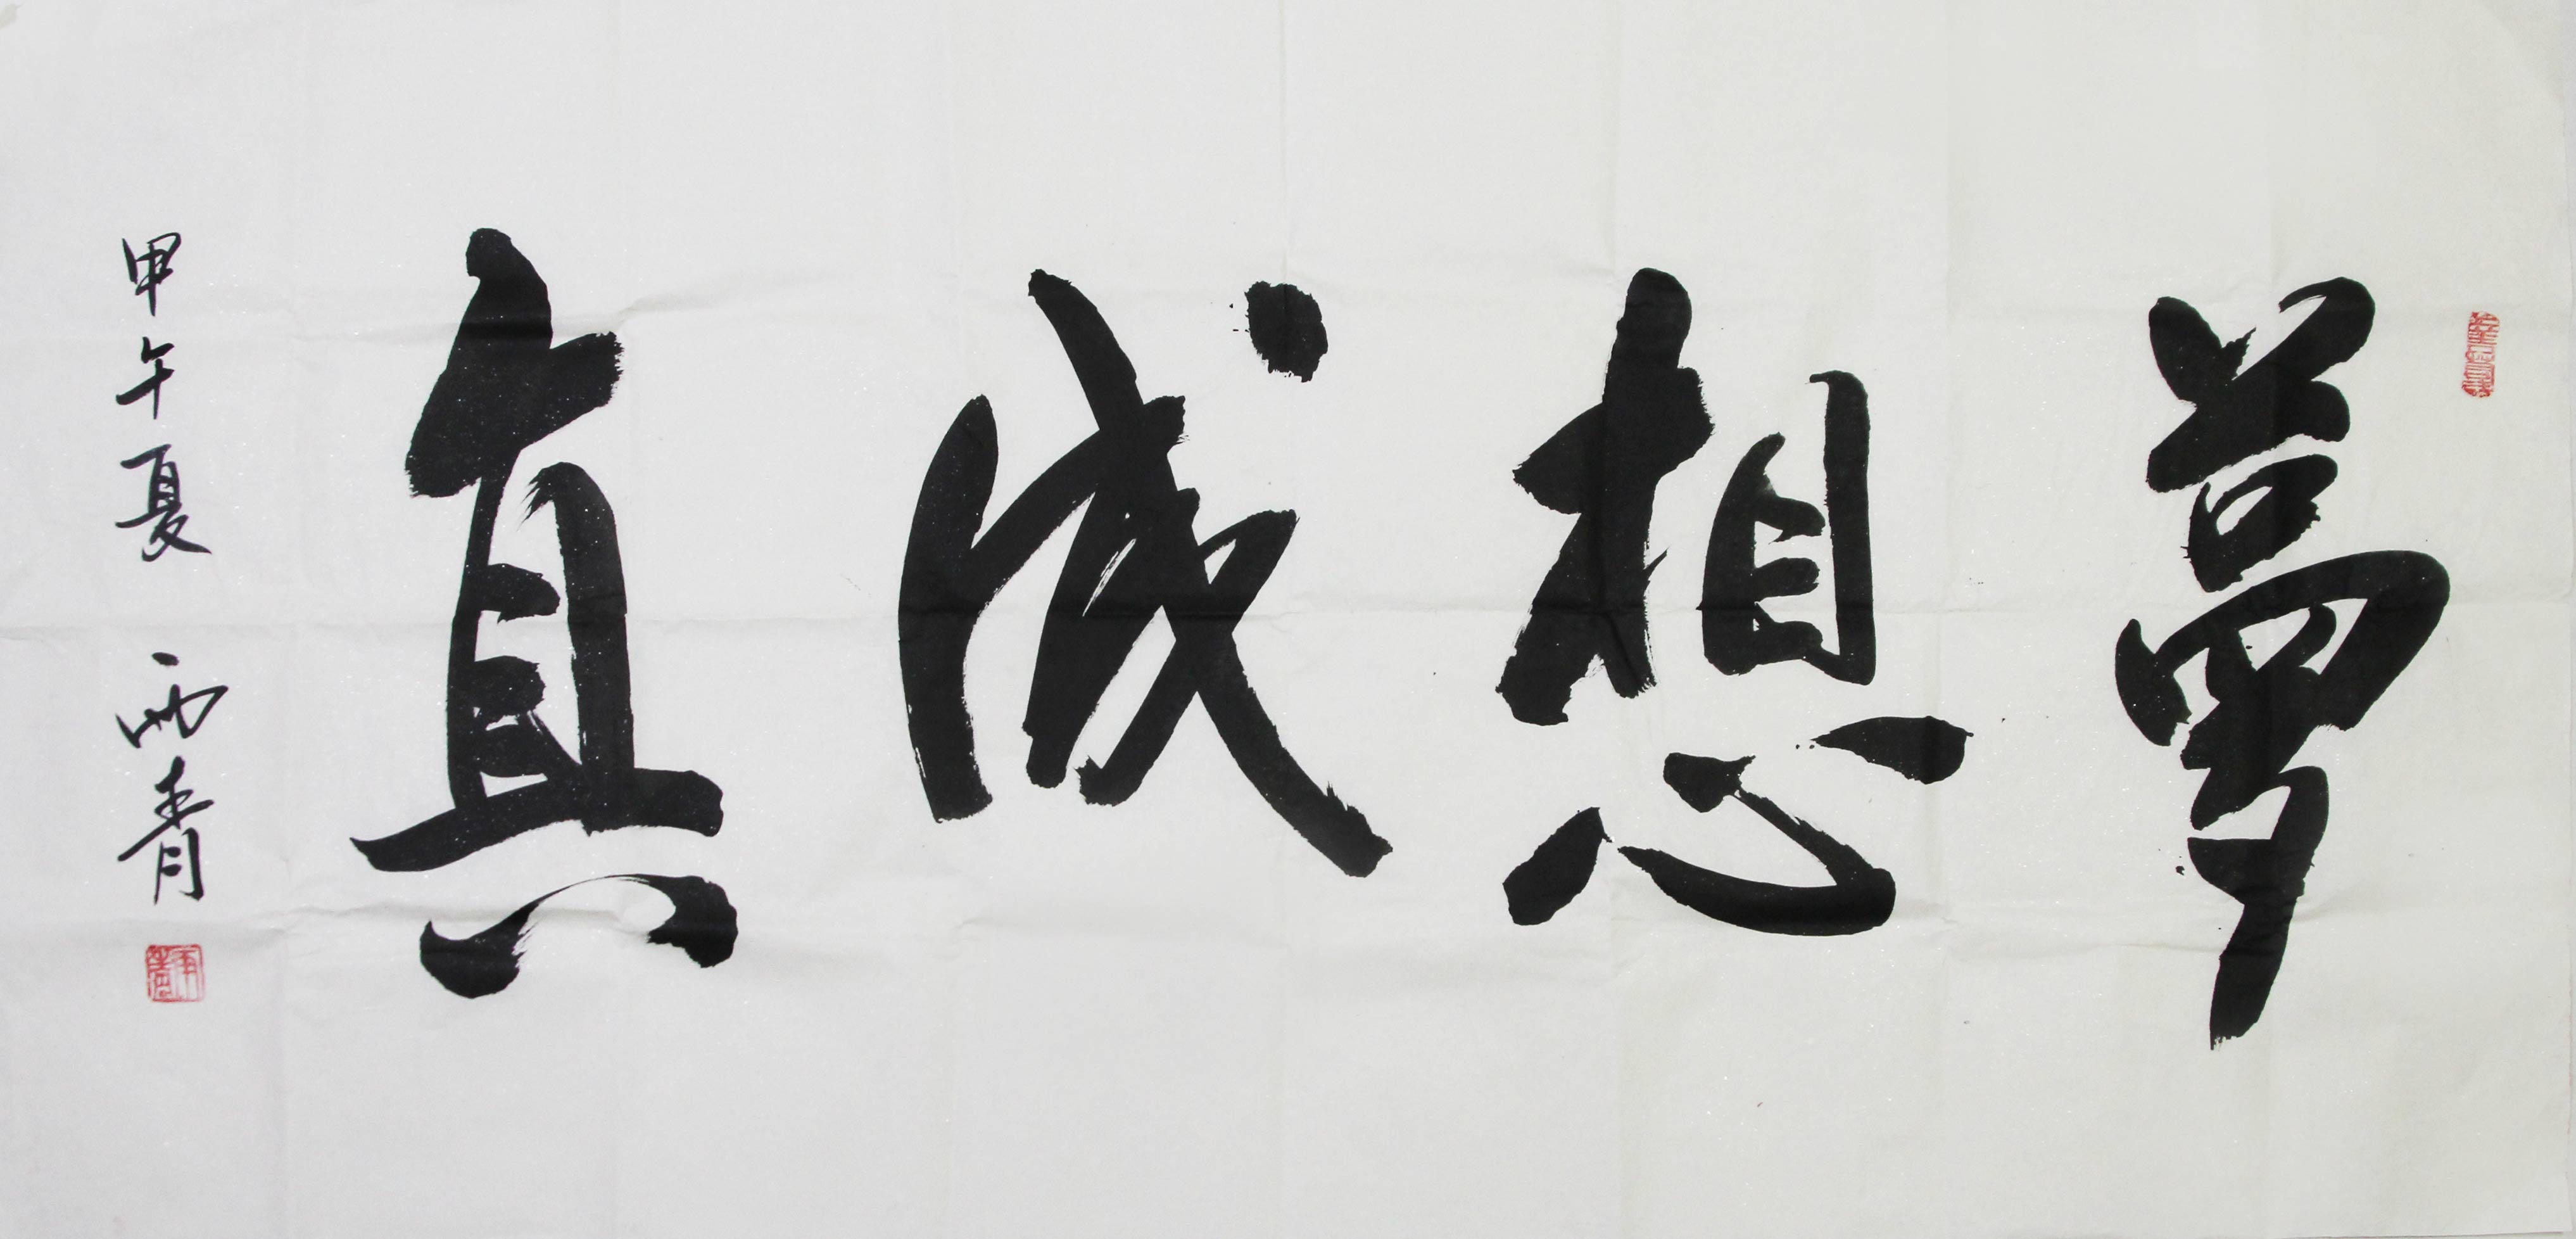 夢想成真
甲午夏 雨青